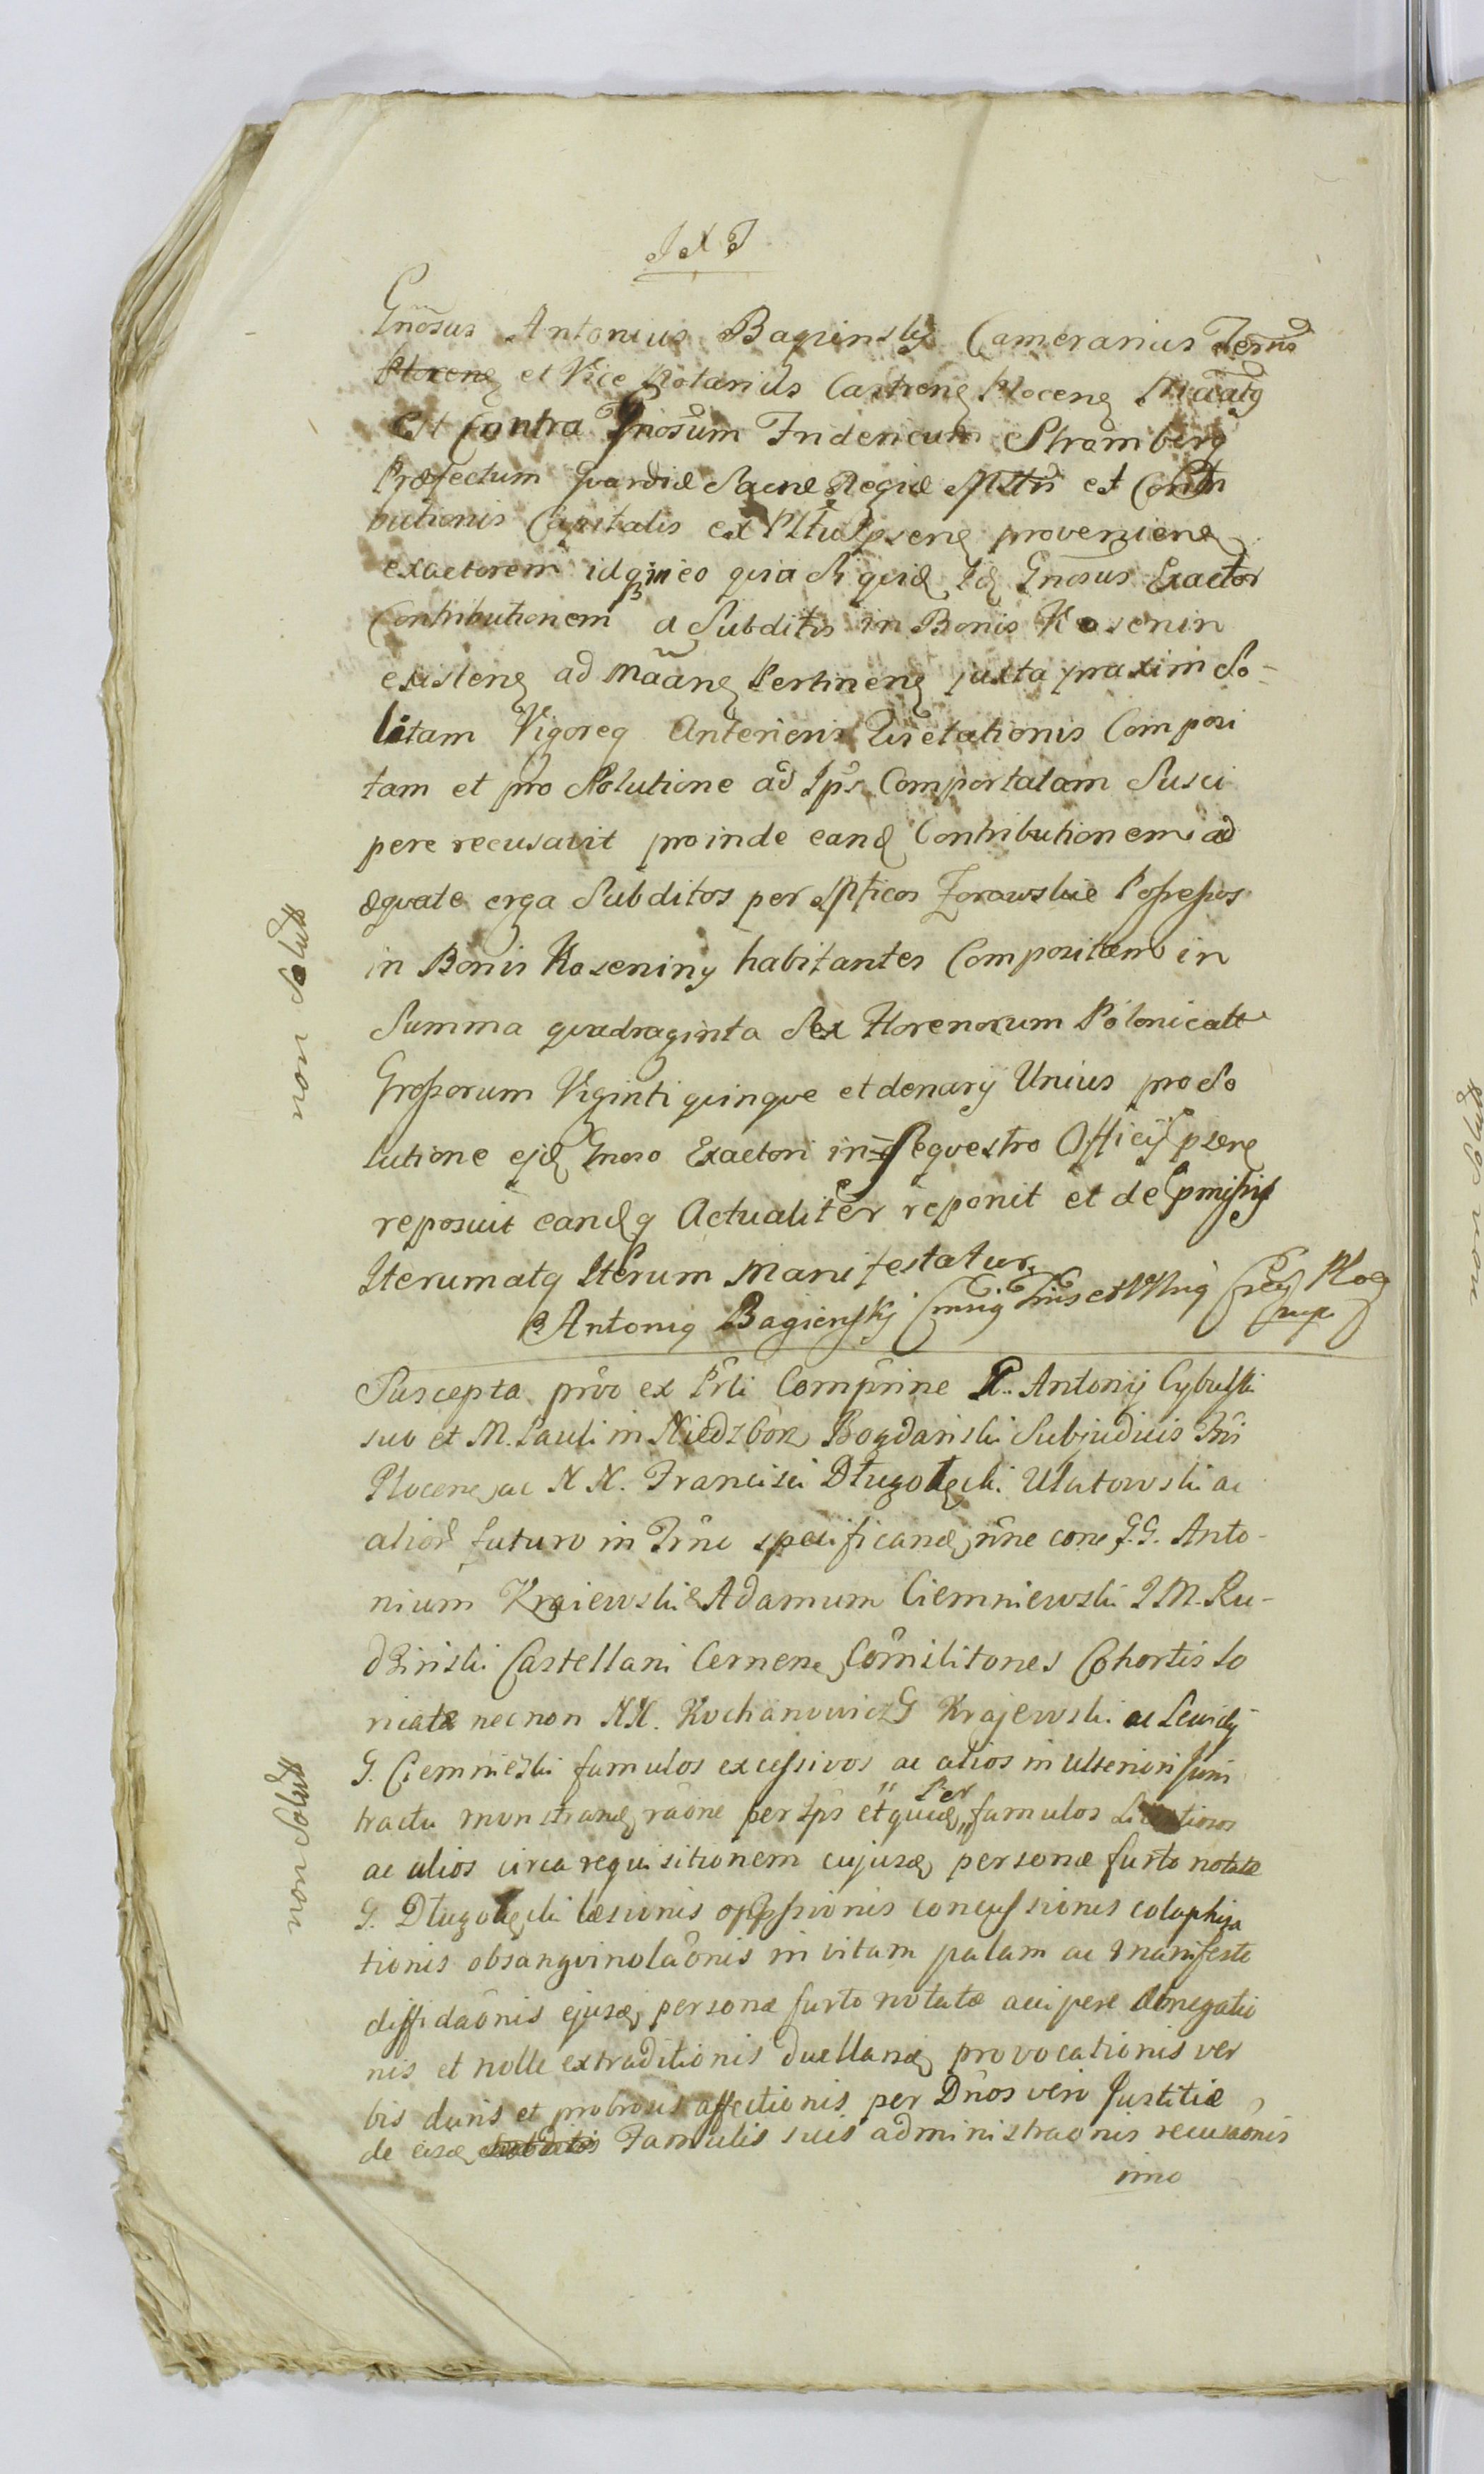 J X J
Gnosus Antonius Bagiensky Camerarius Terris
Plocens et Vice Notarius Castrens Plocens Maatq
est Contra Gnosum Fridericum Stromberg
Præfectum Guardiæ Sacræ Regiæ Mttis et Contri
butionis Capitalis ex Plttu pseng provenieng
exactorem idq in eo quia siquid Id Gnosus Exactor
Contributionem a Subditis in Bonis Kosenin
existeng ad Maang Pertineng juxta praxim So-
litam Vigoreq Anterioris Quietationis Compori
tam et pro Solutione ad Ips Comportatam Susci
pere recusavit proinde eand Contributionem ad
æquate erga Subditos per Mficos Zorawskie Possessos
in Bonis Koseniny habitantes Compositam in
Summa quadraginta Sex Florenorum Polonicali
Grossorum Viginti quinque et denarij Unius pro So
lutione ejd Gnoso Exactori in Sequestro Officij pseng
reposuit candq Actualiter reponit et de pmissis
Iterumatq Iterum Manifestatur
Antonig Bagienskj
Suscepta prvo ex Prti Comprine G. Antonij Cybulski
suo et M. Pauli in Niedzborz Bogdanski Subjudicis Tris
Plocens ac N N. Francisci Długołęcki Ulatowski ac
aliord futuro in Trne specificand, nne cone G.G. Anto-
nium Krajewski & Adamum Ciemniewski I M. Ru-
dzinski Castellani Cernens Comilitones Cohortis lo
ricatæ necnon NN. Kochanowicz G Krajewski ac Lewicky
G. Ciemnieski famulos excessivos ac alios in ulteriori juris
tractu monstrand, raone per Ips et quid, per famulos
ac alios circa requisitionem cujusd, personæ furto notatæ
G. Długołęcki læsionis oppssionis concussionis colaphiza
tionis obsangvinolaonis in vitam palam ac manifeste
diffidaonis ejusd, personæ furto notatæ accipere abnegatio
nis et nolle extraditionis duelland, provocationis ver
bis duris et probrosis affectionis per Dnos veri Justitiæ
de eisd, subditis Famulis suis administraonis recusaonis
imo
non Solutt
non Solutt
non Solutt